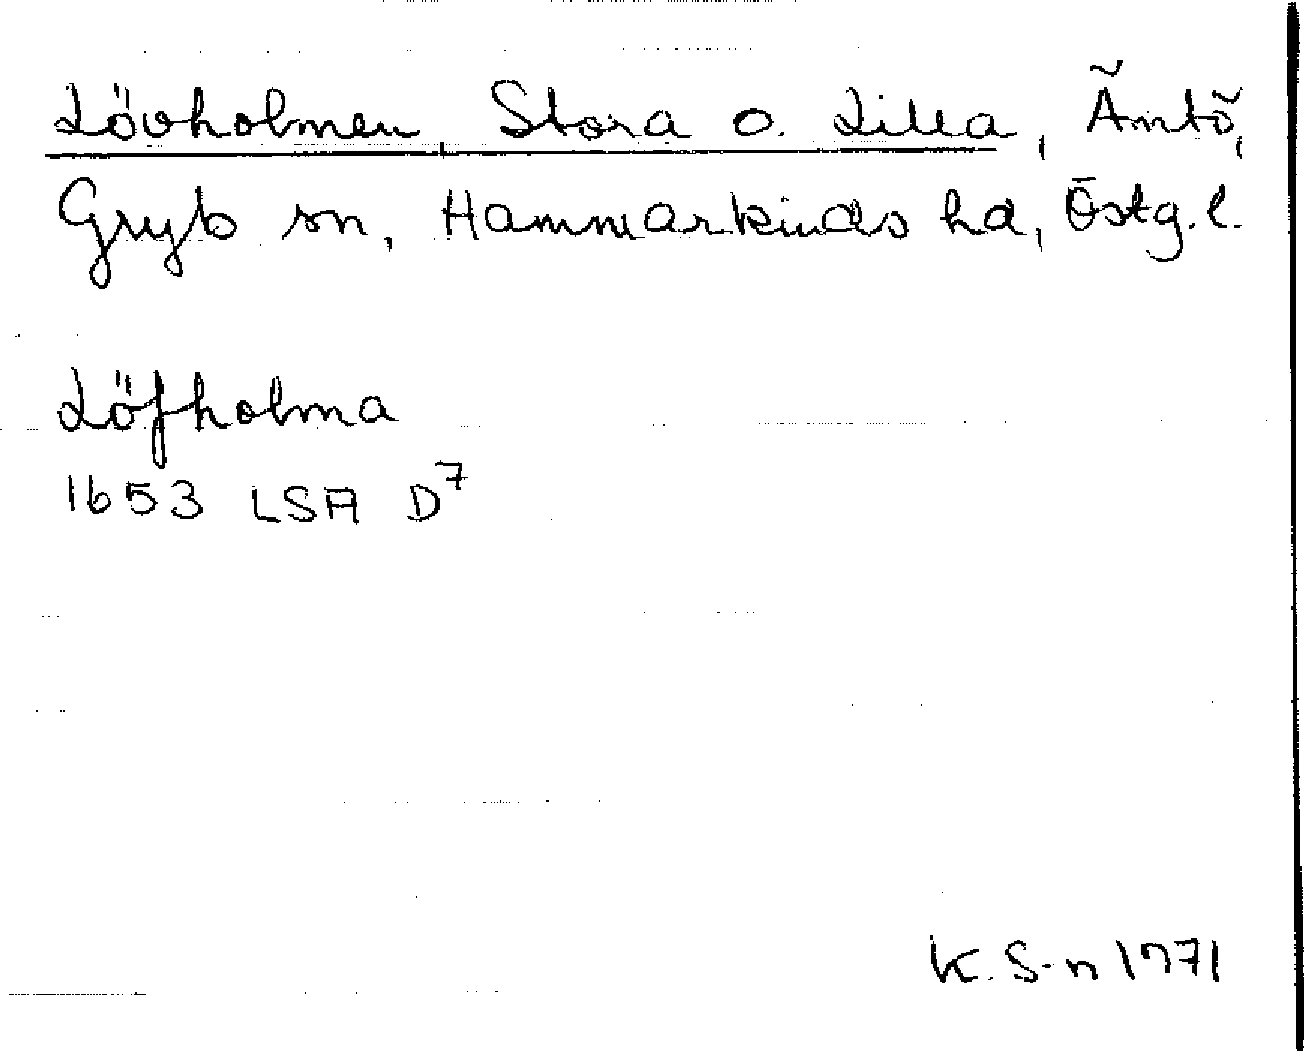 Lövholmen, Stora o. Lilla, Ämtö,
Gryts sn, Hammarkinds hd, Östg.l.
Löfholma
1653 LSA D7
K. S-n 1971